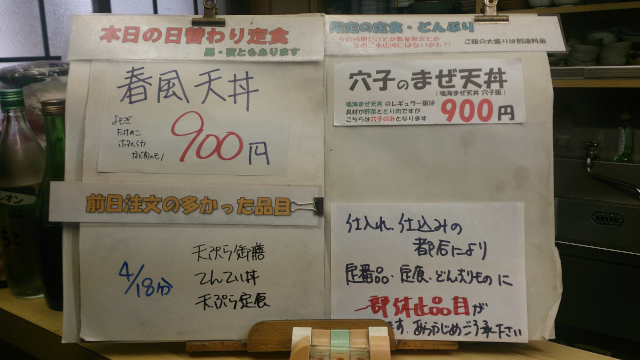 本日の日替わり定食
昼・夜ともあります
春風天丼
よもぎ
たけのこ
900円
前日注文の多かった品目
4/18分
天ぷら御膳
てんてい丼
天ぷら定食
限定の定食・どんぶり
ご飯の大盛りは別途料金
穴子のまぜ天丼
(鳴海まぜ天丼 穴子版)
鳴海まぜ天丼 のレギュラー版は
具材が野菜ととり肉ですが
こちらは穴子のみとなります
900円
仕入れ、仕込みの
都合により
定番品・定食・どんぶりものに
一部休止品目が
ます、あらかじめご了承下さい